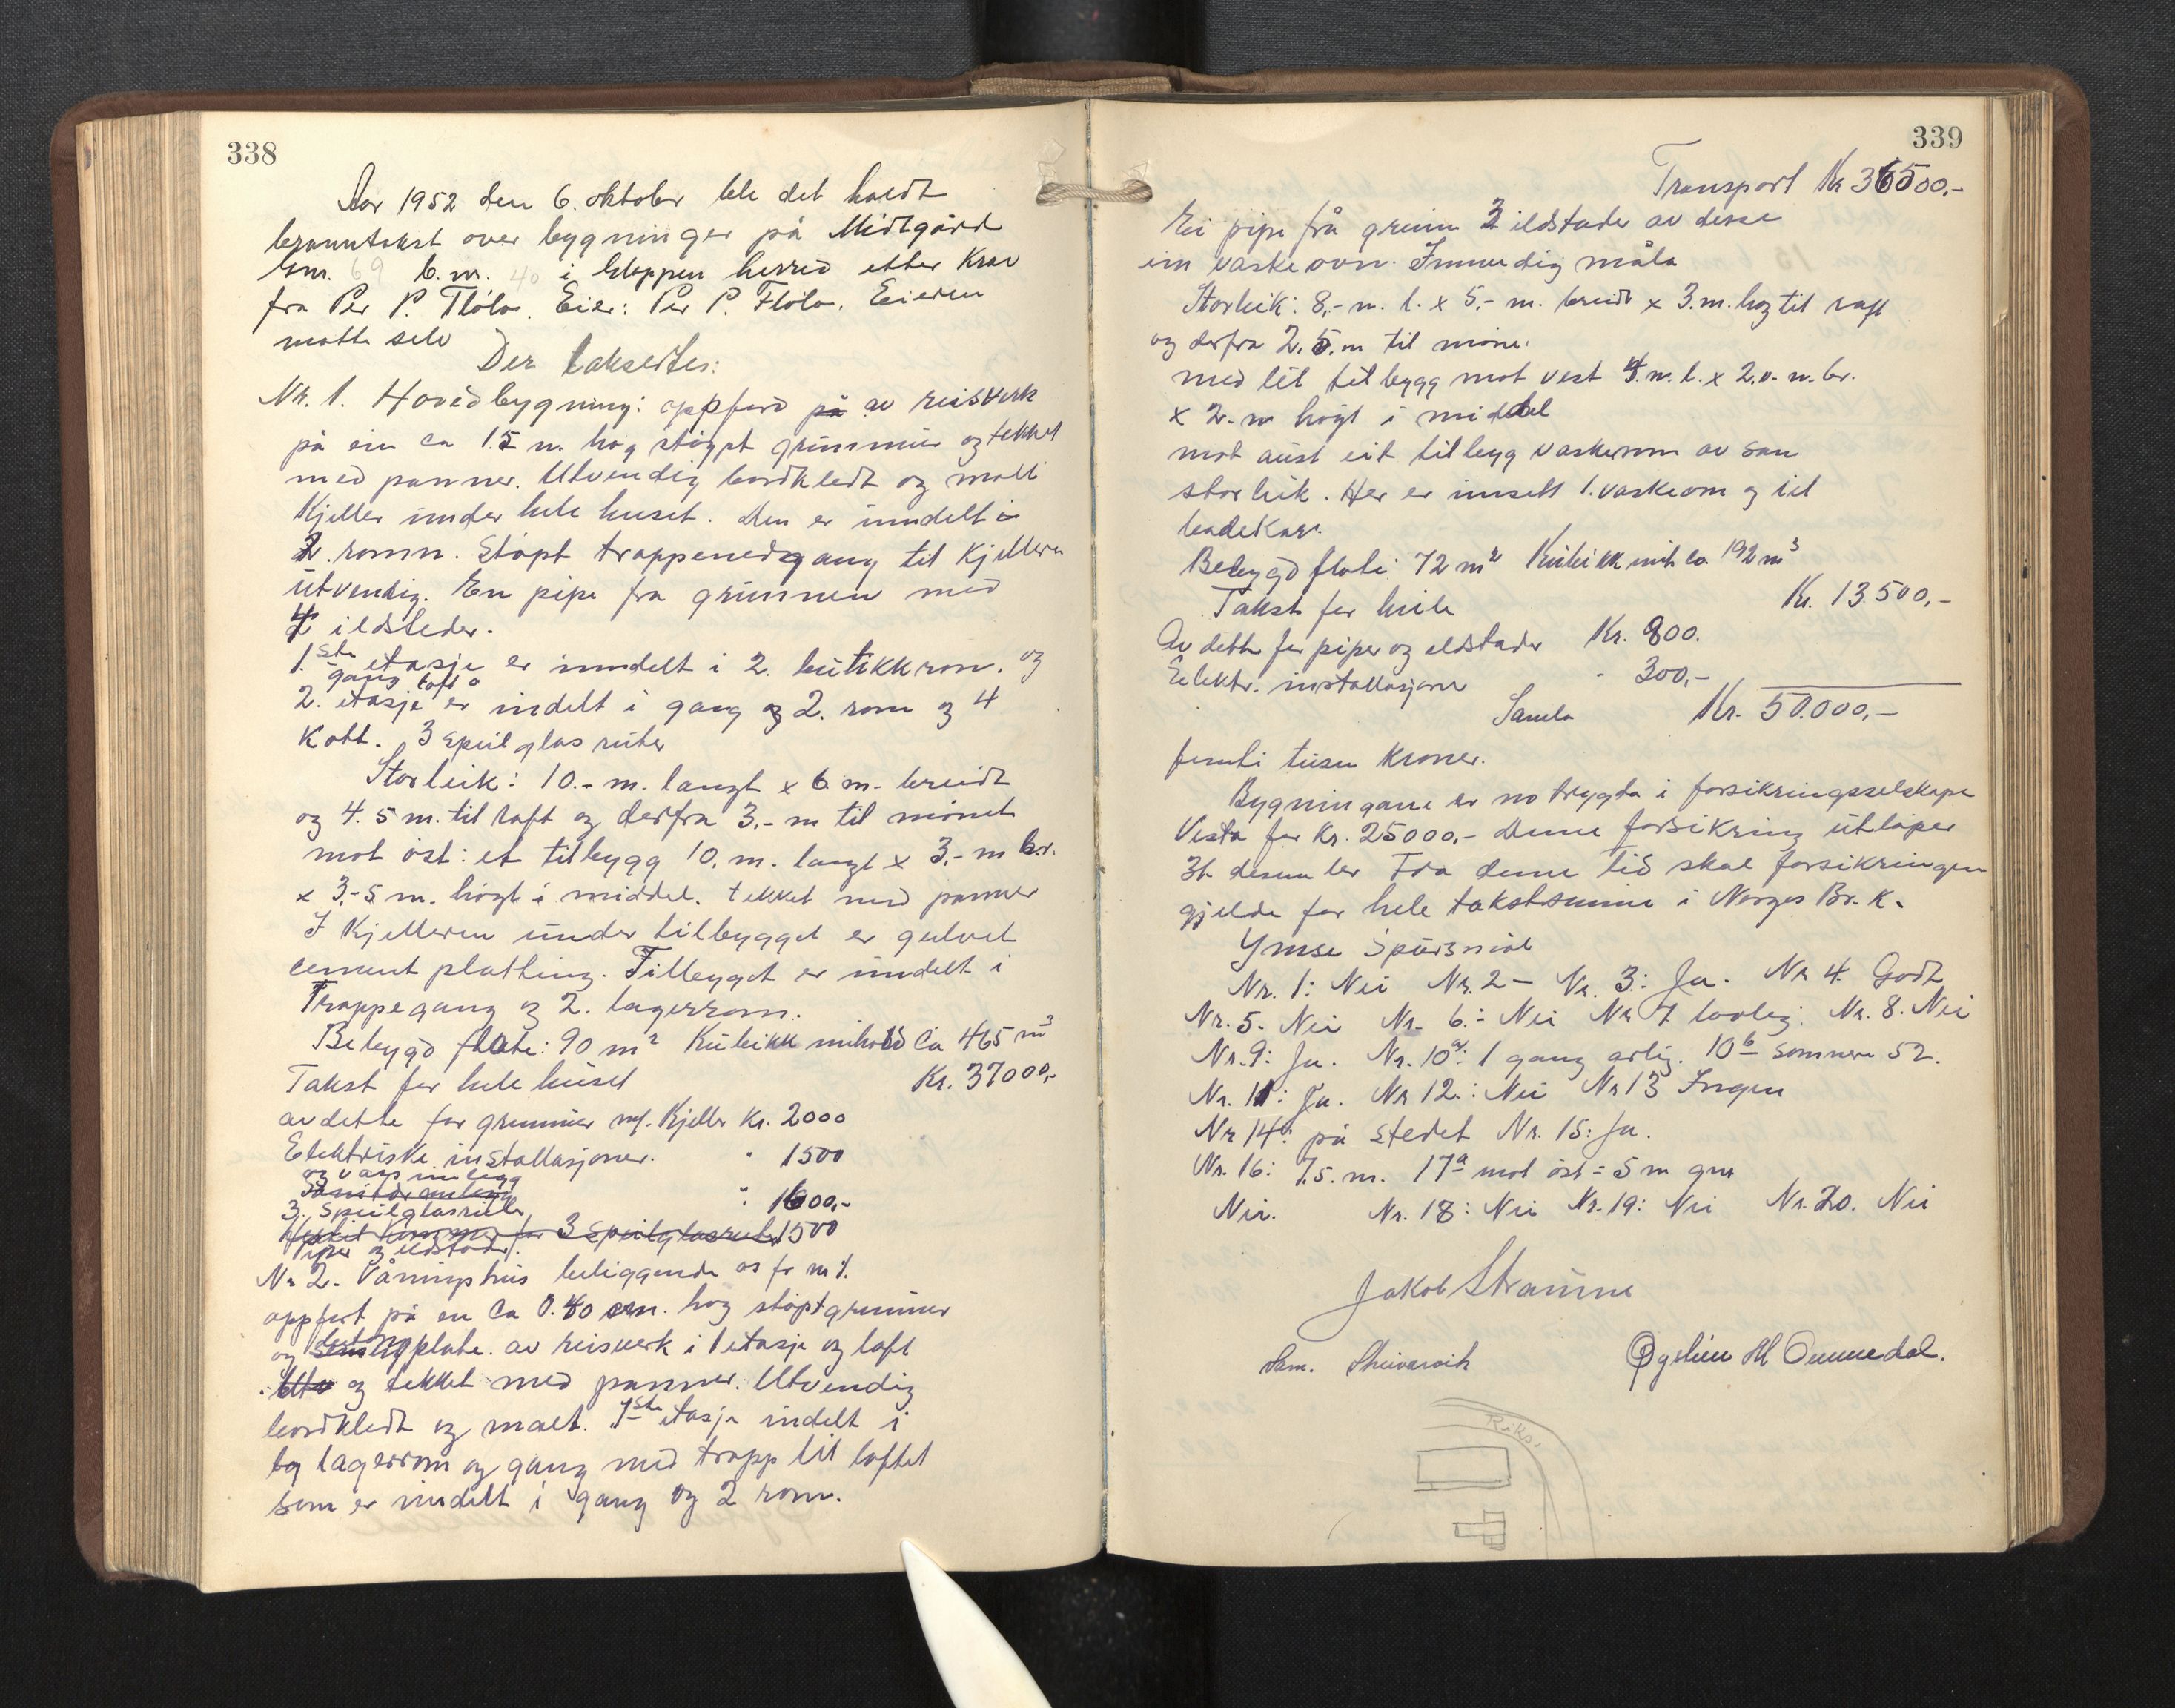 338
Aar 1952 den 6. oktober ble det holdt
branntakst over bygninger på Midtgård
Gnr. 69 b.nr. 40 i Gloppen herred etter krav
fra Per P. Fløla. Eier: Per P. Fløla. Eieren
møtte selv
Der taksertes:
Nr. 1. Hovedbygning: oppførd på av reisverk
på ein ca 1.5 m. høg støypt grunnmur og tekket
med panner. Utvendig bordkledt og malt
Kjeller under hele huset. Den er inndelt i
2. romm. Støpt trappenedgang til Kjelleren
utvendig. En pipe fra grunnen med
4 ildsteder.
1.ste etasje er inndelt i 2. butikkrom. og
gang loft
2. etasje er indelt i gang og 2. rom og 4
Kott. 3 speilglas ruter
Storleik: 10.- m. langt x 6 m. breidt
og 4.5 m. til raft og derfra 3,- m til mønet
mot øst: et tilbygg 10. m. langt x 3,- m br.
x 3,-5 m. høgt i middel. tekket med panner
I Kjelleren under tilbygget er gulvet
cement platting. Tilbygget er inndelt i
Trappegang og 2. lagerrom.
Bebygd flate: 90 m² Kubikk innhold ca 465 m³
Takst for hele huset Kr. 37000,-
av dette for grunnmur m/. Kjeller Kr. 2000
Elektriske installasjoner. " 1500
og vass innlegg
Sanitær anlegg " 1600,-
3. speilglasruter
3 Speilglasruter 1500
Piper og eldstader.
Nr 2. Våningshus beliggende as for nr 1.
oppført på en ca 0.40 cm. høg støpt grunnmur
og plate. av reisverk i 1 etasje og loft
Utv og tekket med panner. Utvendig
bordkledt og malt. 1ste etasje indelt i
to lagerrom og gang med trapp til loftet
som er inndelt i gang og 2 rom.
339
Transport Kr 36500,-
Ei pipe frå grunn 3 ildstader av desse
ein vaskeovn. Innvendig måla
Storleik: 8,- m. l. x 5,- m. breidt x 3. m. høg til raft
og derfra 2.5. m til møne.
med lit tilbygg mot vest 4. m. l. x 2.0. m. br.
x 2- m høgt i middel
mot aust eit tilbygg vaskerom av sam
storleik. Her er innsett 1. vaskeovn og eit
badekar.
Bebygd flate: 72 m² Kubikk innh. ca 192 m³
Takst for heile Kr. 13.500,-
Av dette for piper og eldstader Kr. 800.
Elektr. installasjoner - 300,-
Samla Kr. 50.000,-
femti tusen kroner.
Bygningane er no trygda i forsikringsselskape
Vesta for Kr. 25000,- Denne forsikring utløper
31. desember Fra denne tid skal forsikringen
gjelde for hele takstsumme i Norges Br. K.
Ymse Spursmål
Nr. 1: Nei Nr. 2 - Nr. 3: Ja. Nr 4. Godt
Nr. 5. Nei Nr. 6.: Nei Nr 7. lovleg. Nr. 8. Nei
Nr. 9: Ja. Nr. 10a: 1 gang årlig. 10b sommeren 52.
Nr. 11: Ja. Nr 12.: Nei Nr 13 Ingen
Nr 14: på stedet Nr. 15: Ja.
Nr. 16: 7.5. m. 17a mot øst = 5 m
Nei. Nr. 18: Nei Nr. 19: Nei Nr. 20. Nei
Jakob Straume
Sam. Øystein M Ommedal.
Riks.